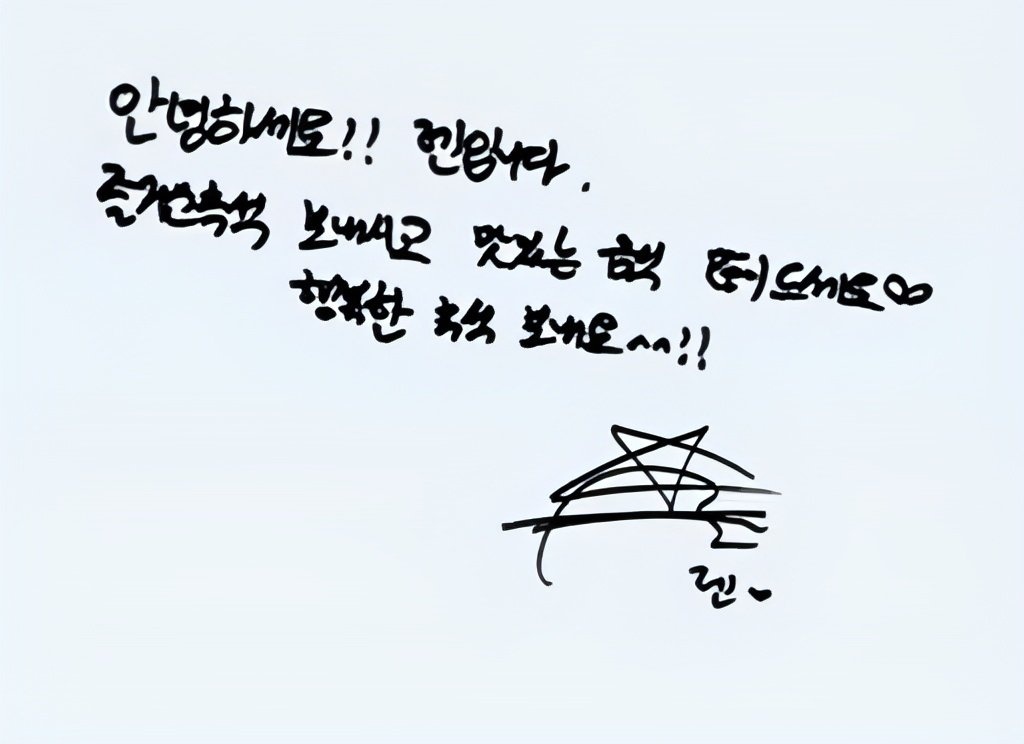 안녕하세요!! 렌입니다.
즐거운추석 보내시고 맛있는 음식 많이 드세요♡
행복한 추석 보내요^^!!
렌♥